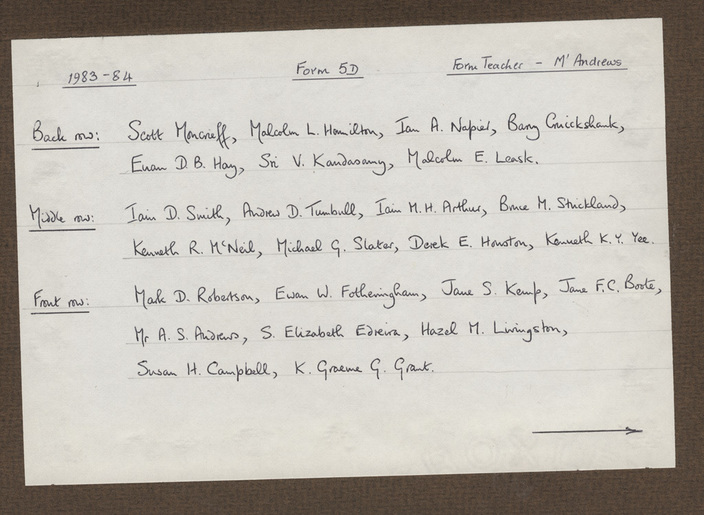 1983-84 Form 5D Form Teacher - Mr Andrews
Back row: Scott Moncrieff, Malcolm L. Hamilton, Ian A. Napier, Barry Cruickshank,
Euan D.B. Hay, Sri V. Kandasamy, Malcolm E. Leask.
Middle row: Iain D. Smith, Andrew D. Turnbull, Iain M.H. Arthur, Bruce M. Strickland,
Kenneth R. McNeil, Michael G. Slater, Derek E. Houston, Kenneth K.Y. Yee.
Front row: Mark D. Robertson, Ewan W. Fotheringham, Jane S. Kemp, Jane F.C. Boote,
Mr A. S. Andrews, S. Elizabeth Edreira, Hazel M. Livingston,
Susan H. Campbell, K. Graeme G. Grant.